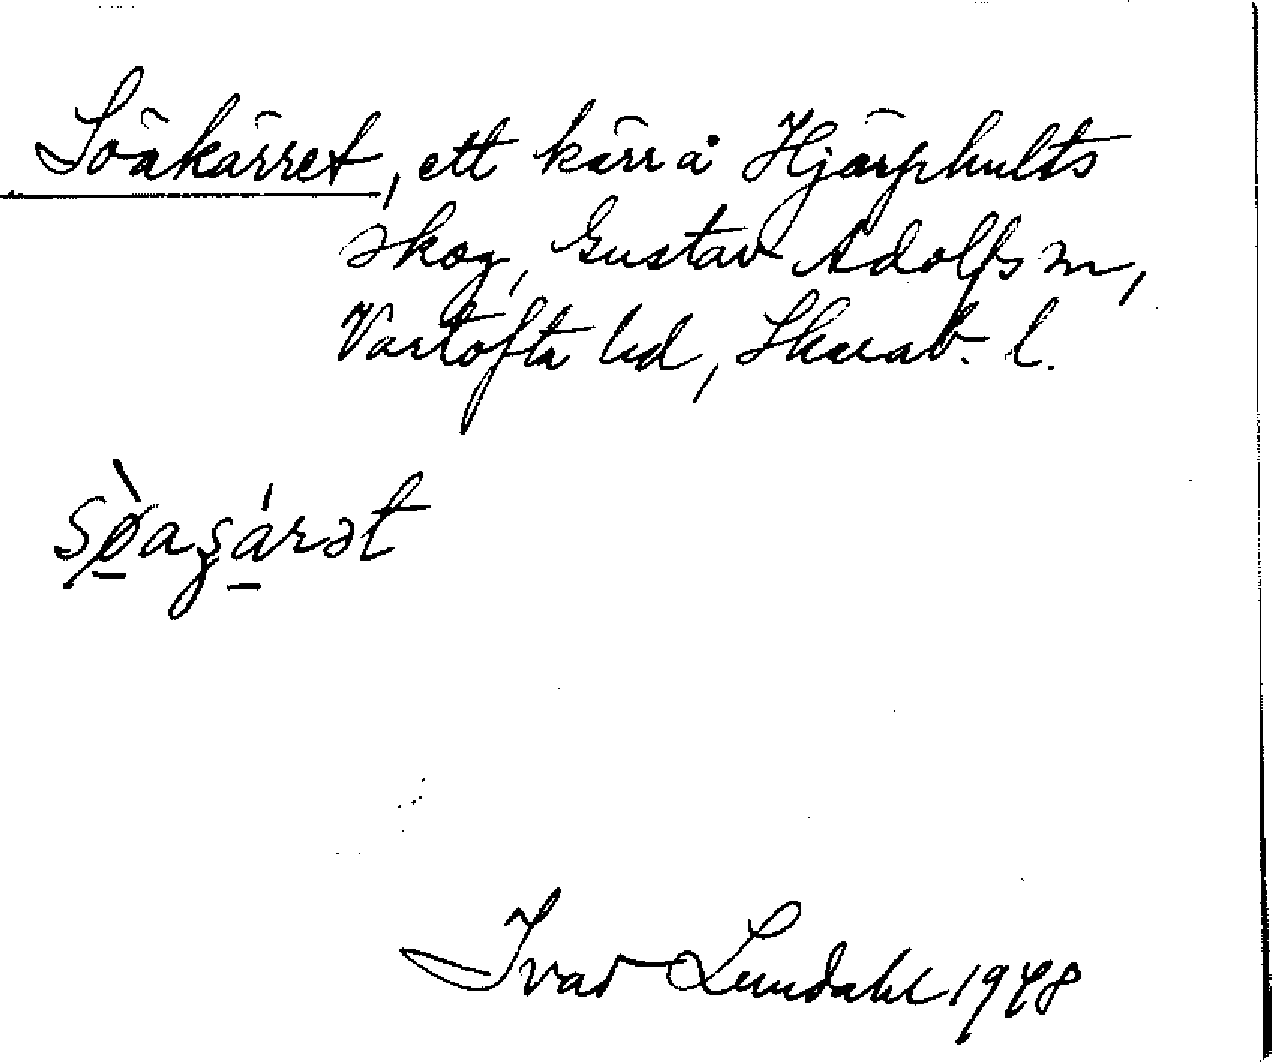 Söakärret, ett kärr å Hjärphults
skog, Gustav Adolfs sn,
Vartofta hd, Skarab. l.
sø̀aʂárət
Ivar Lundahl 1948